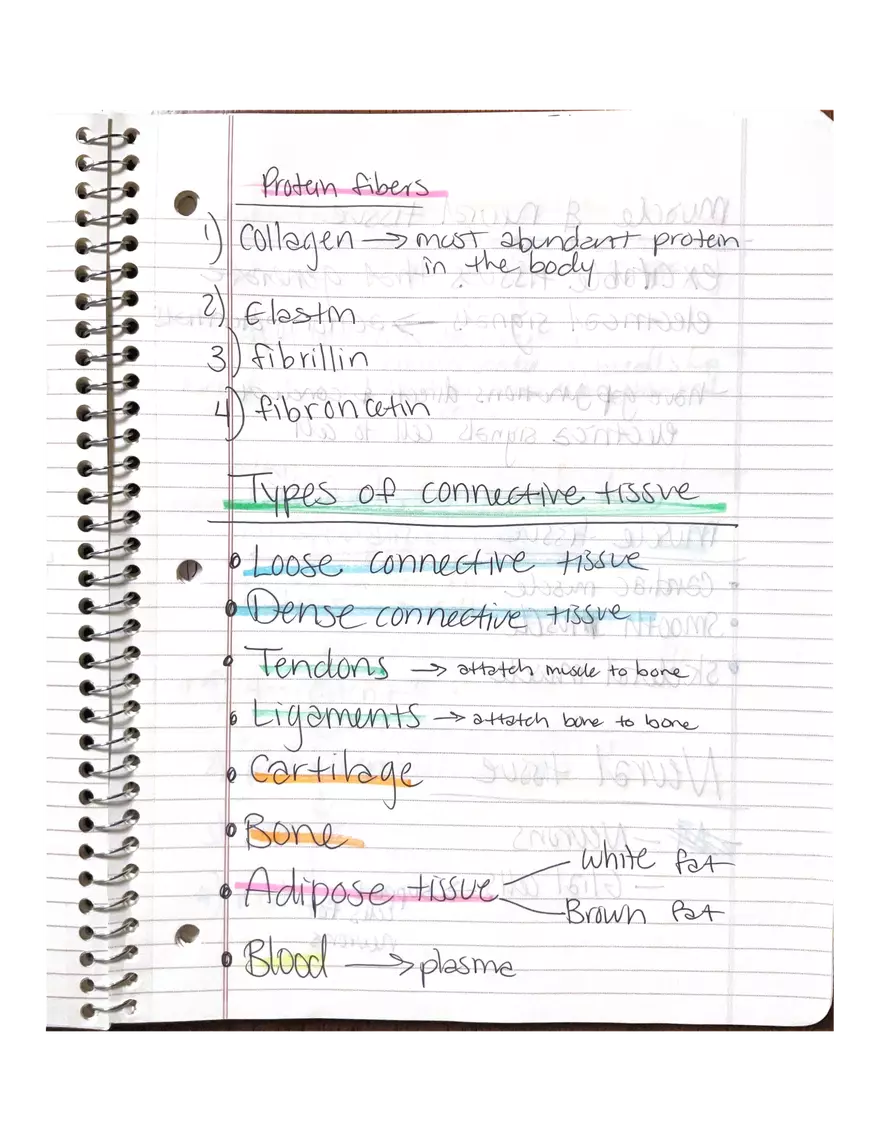 Protein fibers
1) Collagen → most abundant protein
in the body
2) Elastin
3) fibrillin
4) fibronectin
Types of connective tissue
• Loose connective tissue
• Dense connective tissue
• Tendons → attatch muscle to bone
• Ligaments → attatch bone to bone
• Cartilage
• Bone
• Adipose tissue
White fat
Brown fat
• Blood → plasma